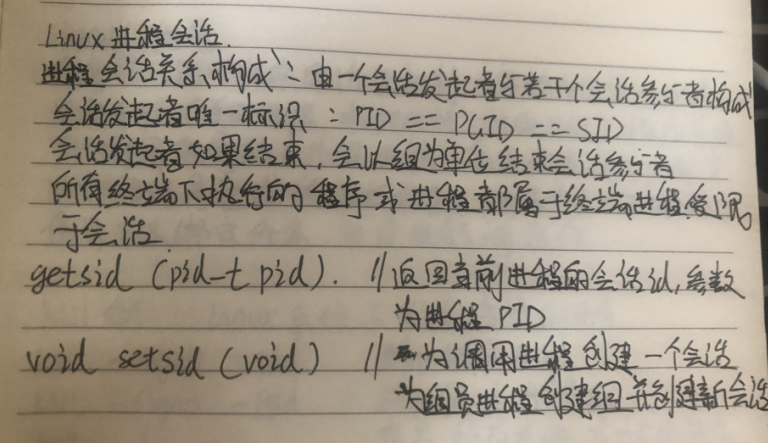 Linux 进程会话.
进程会话关系构成: 由一个会话发起者与若干个会话参与者构成
会话发起者唯一标识 : PID == PGID == SID
会话发起者如果结束, 会以组为单位结束会话参与者
所有终端下执行的程序或进程都属于终端进程,受限
于会话.
getsid (pid_t pid). // 返回当前进程的会话id, 参数
为进程 PID
void setsid (void) // 为调用进程创建一个会话
为组员进程创建组并创建新会话